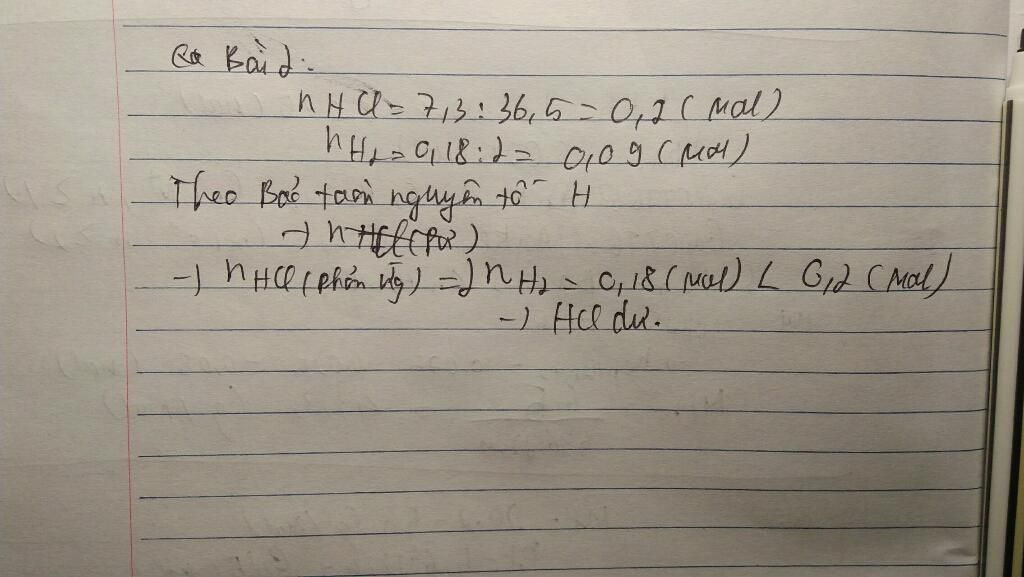 Bài 2:
nHCl = 7,3 : 36,5 = 0,2 (mol)
nH2 = 0,18 : 2 = 0,09 (mol)
Theo Bảo toàn nguyên tố H
→ nHCl(pứ)
→ nHCl (phản ứng) = 2nH2 = 0,18 (mol) < 0,2 (mol)
→ HCl dư.